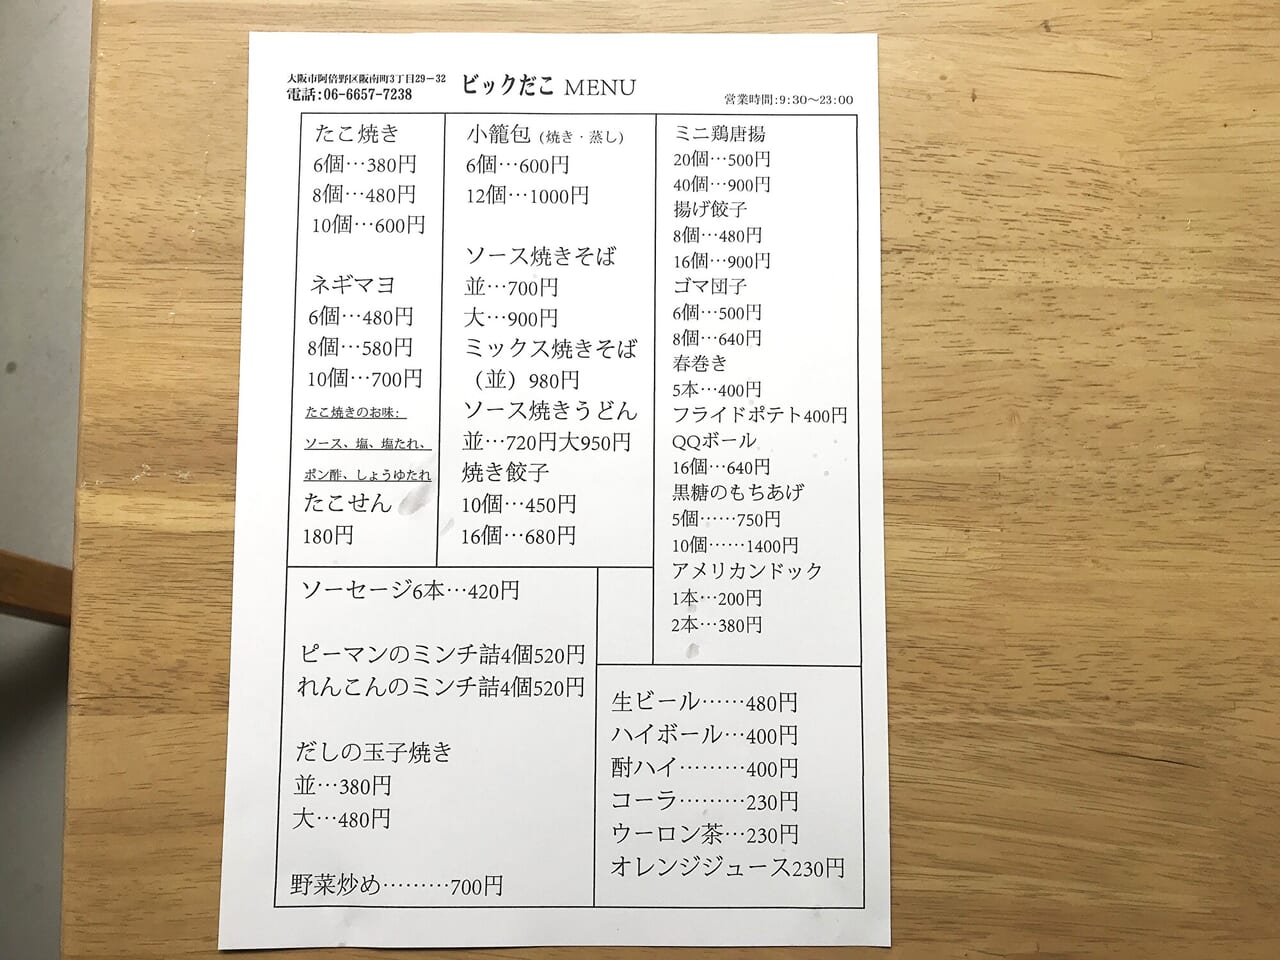 大阪市阿倍野区阪南町3丁目29-32
電話:06-6657-7238
ビックだこ MENU
営業時間:9:30～23:00
たこ焼き
6個…380円
8個…480円
10個…600円
ネギマヨ
6個…480円
8個…580円
10個…700円
たこ焼きのお味:
ソース、塩、塩たれ、
ポン酢、しょうゆたれ
たこせん
180円
小籠包（焼き・蒸し）
6個…600円
12個…1000円
ソース焼きそば
並…700円
大…900円
ミックス焼きそば
（並）980円
ソース焼きうどん
並…720円大950円
焼き餃子
10個…450円
16個…680円
ミニ鶏唐揚
20個…500円
40個…900円
揚げ餃子
8個…480円
16個…900円
ゴマ団子
6個…500円
8個…640円
春巻き
5本…400円
フライドポテト400円
QQボール
16個…640円
黒糖のもちあげ
5個……750円
10個……1400円
アメリカンドック
1本…200円
2本…380円
ソーセージ6本…420円
ピーマンのミンチ詰4個520円
れんこんのミンチ詰4個520円
だしの玉子焼き
並…380円
大…480円
野菜炒め………700円
生ビール……480円
ハイボール…400円
酎ハイ………400円
コーラ………230円
ウーロン茶…230円
オレンジジュース230円